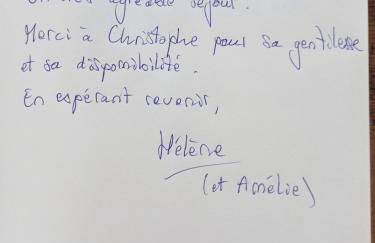 agréable séjour.
Merci à Christophe pour sa gentilesse
et sa disponibilité.
En espérant revenir,
Hélène
(et Amélie)